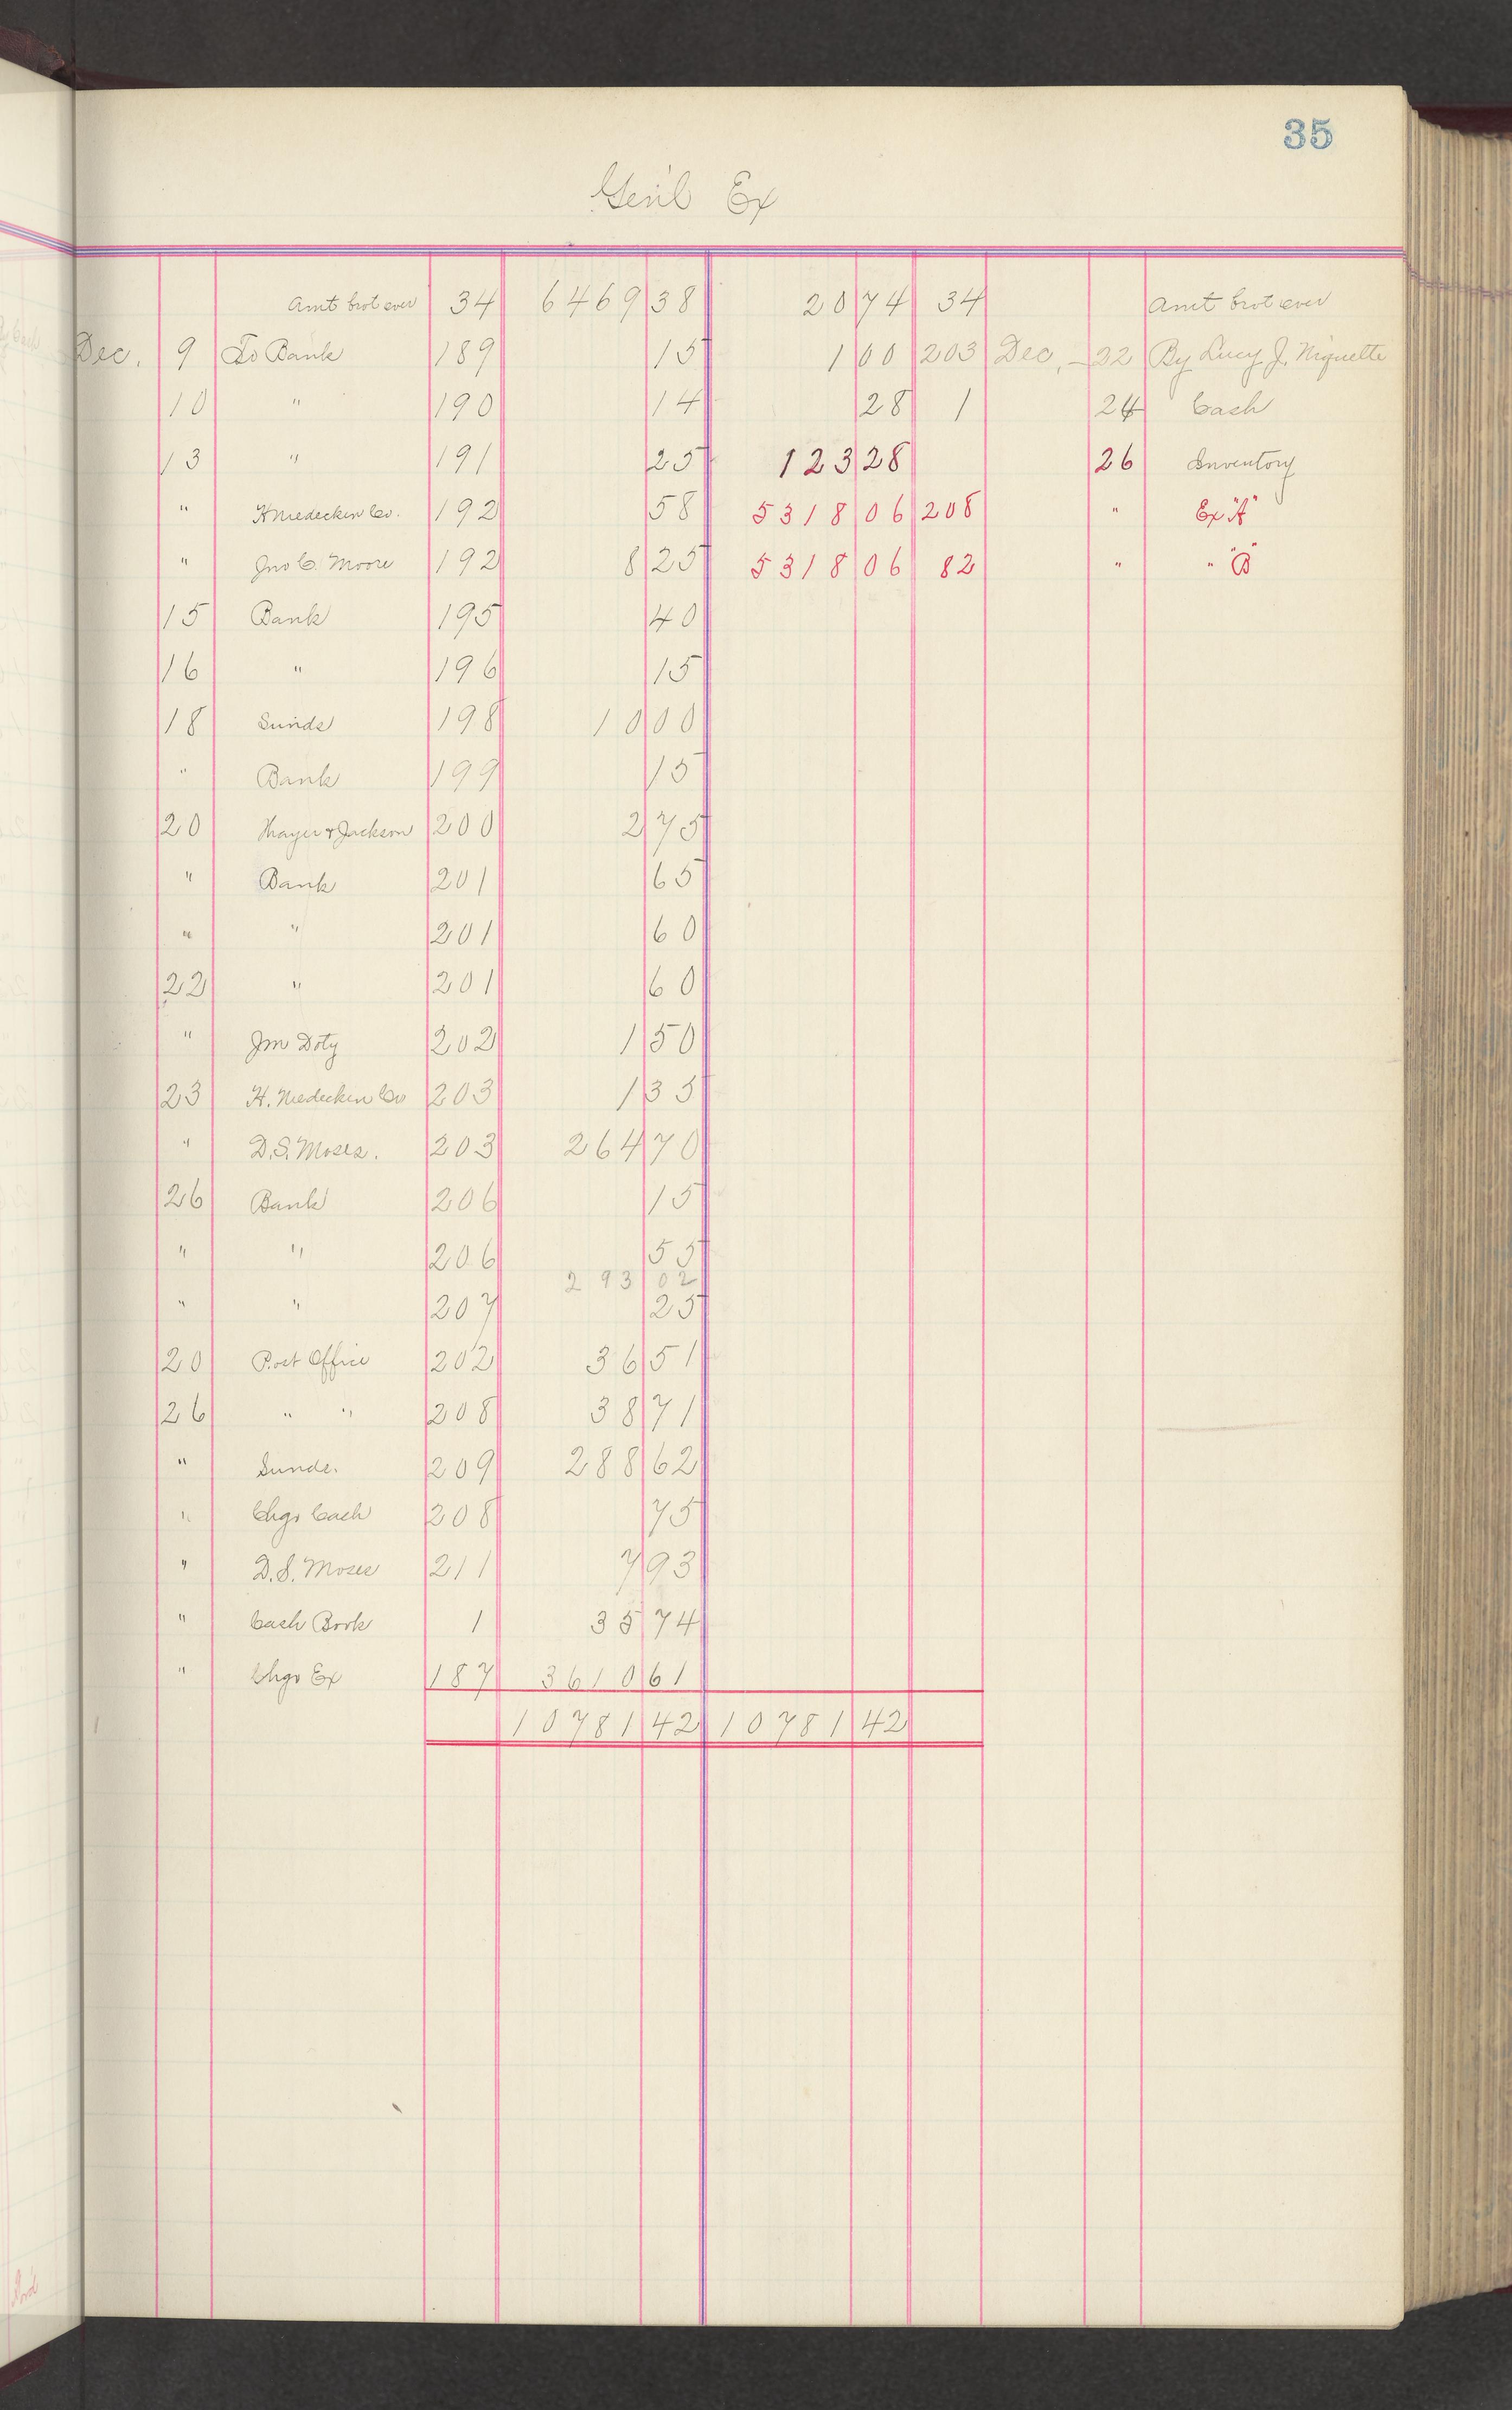 35
Gen'l Ex
Amt brot over 34 6469 38 20 74 34 Amt brot over
Dec. 9 To Bank 189 15 1 00 203 Dec. 22 By Lucy J. Niquette
10 " 190 14 28 1 24 Cash
13 " 191 25 123 28 26 Inventory
" H Niedecken Co. 192 58 5318 06 208 " Ex "A"
" Jno C. Moore 192 8 25 5318 06 82 " " "B"
15 Bank 195 40
16 " 196 15
18 Sunds 198 10 00
" Bank 199 15
20 Thayer & Jackson 200 2 75
" Bank 201 65
" " 201 60
22 " 201 60
" Jm Doty 202 1 50
23 H. Niedecken Co 203 1 35
" D.S. Moses. 203 264 70
26 Bank 206 15
" " 206 55
293 02
" " 207 25
20 Post Office 202 36 51
26 " " 208 38 71
" Sunds. 209 288 62
" Chgo Cash 208 75
" D.S. Moses 211 7 93
" Cash Book 1 35 74
" Chgo Ex 187 3610 61
10781 42 10781 42